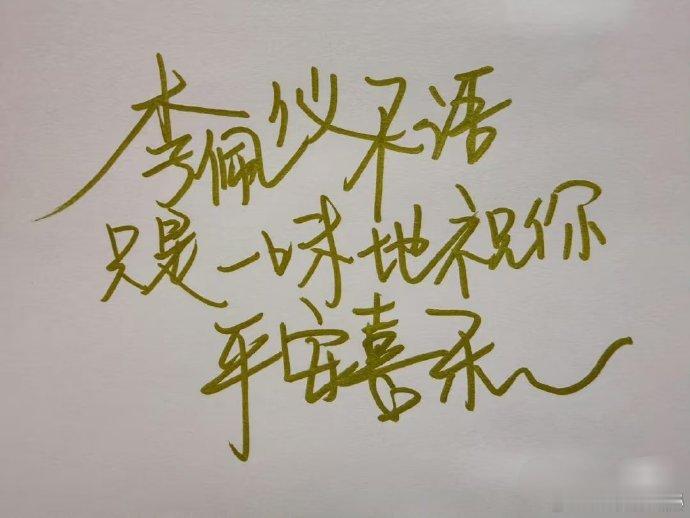 李佩仪不语
只是一味地祝你
平安喜乐~